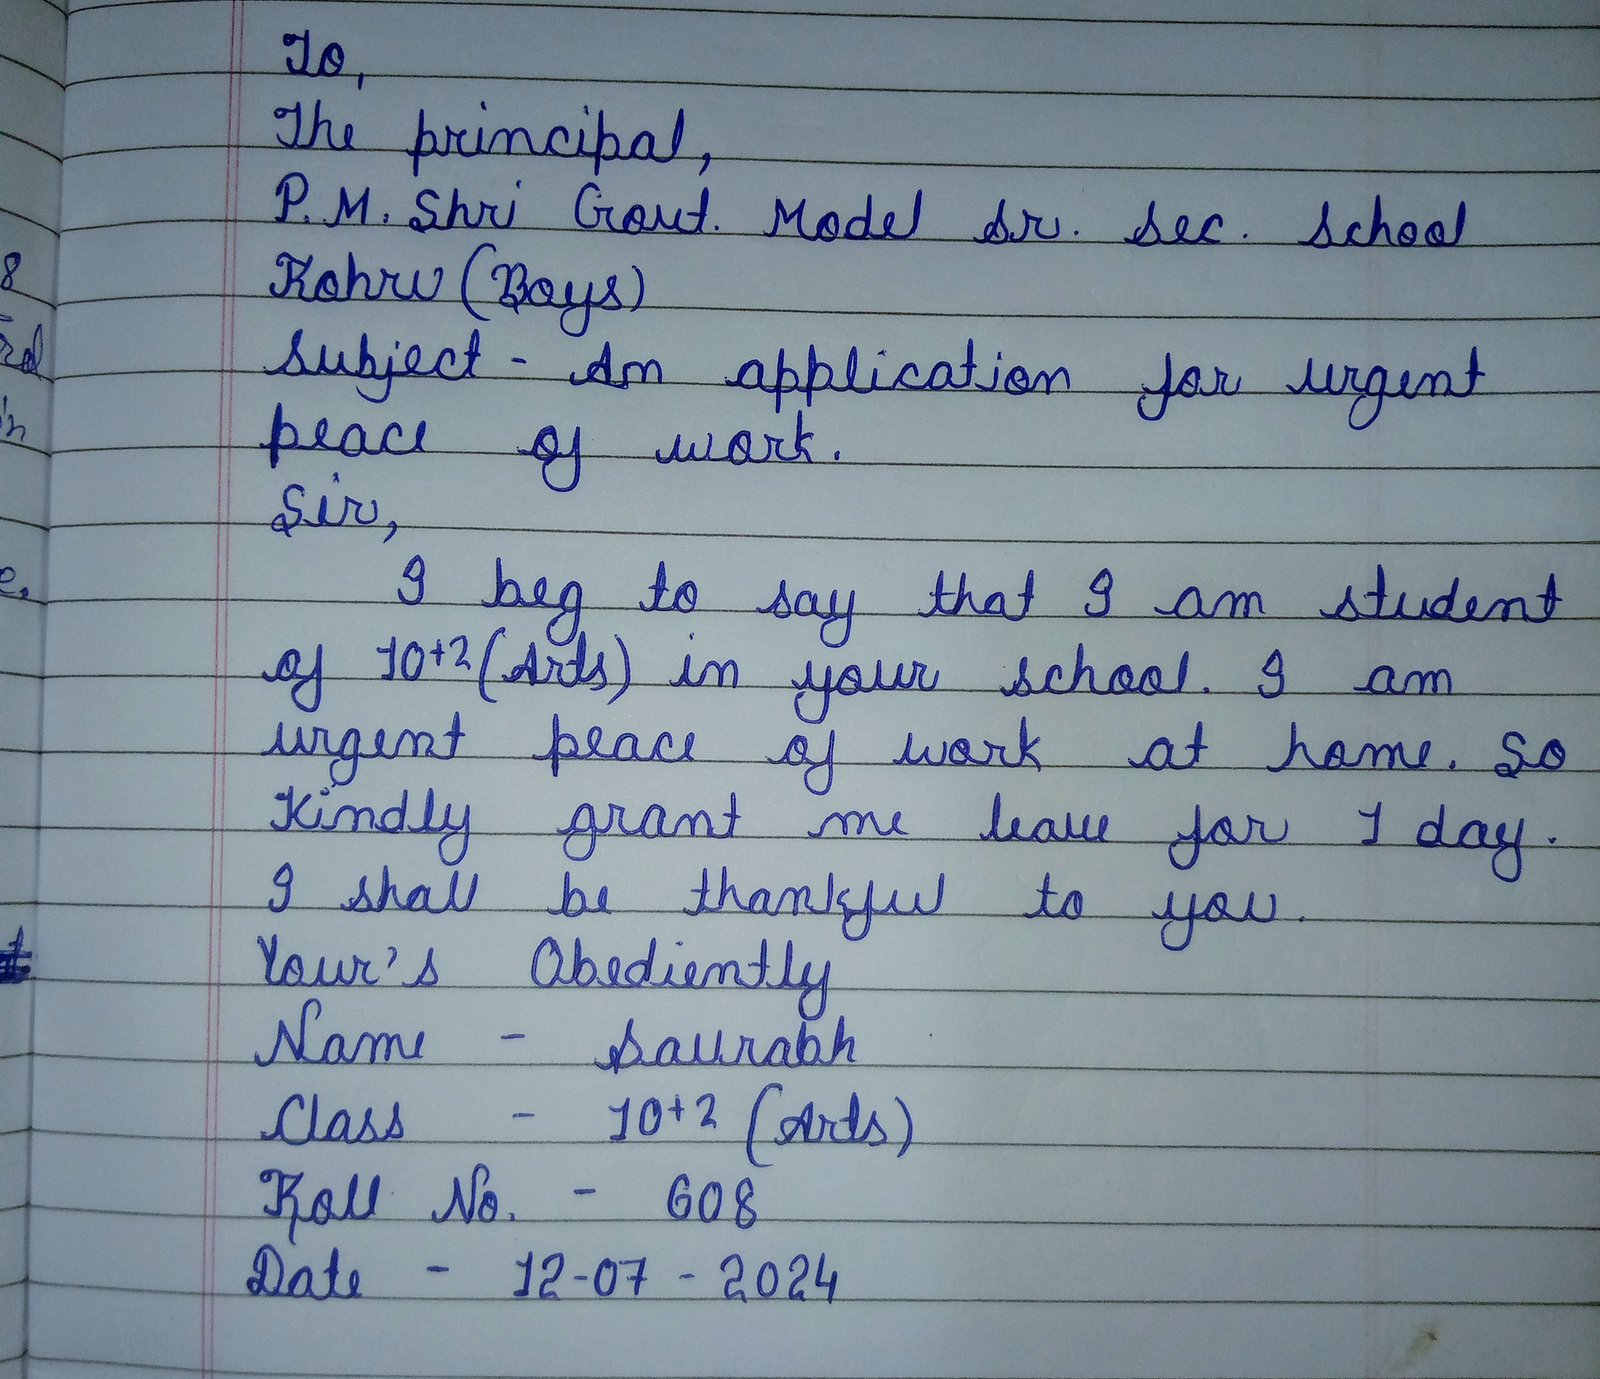 To,
The principal,
P.M. Shri Govt. Model Sr. Sec. School
Kohru (Boys)
Subject - An application for urgent
peace of work.
Sir,
I beg to say that I am student
of 10+2 (Arts) in your school. I am
urgent peace of work at home. So
Kindly grant me leave for 1 day.
I shall be thankful to you.
Your's Obediently
Name - Saurabh
Class - 10+2 (Arts)
Roll No. - 608
Date - 12-07-2024